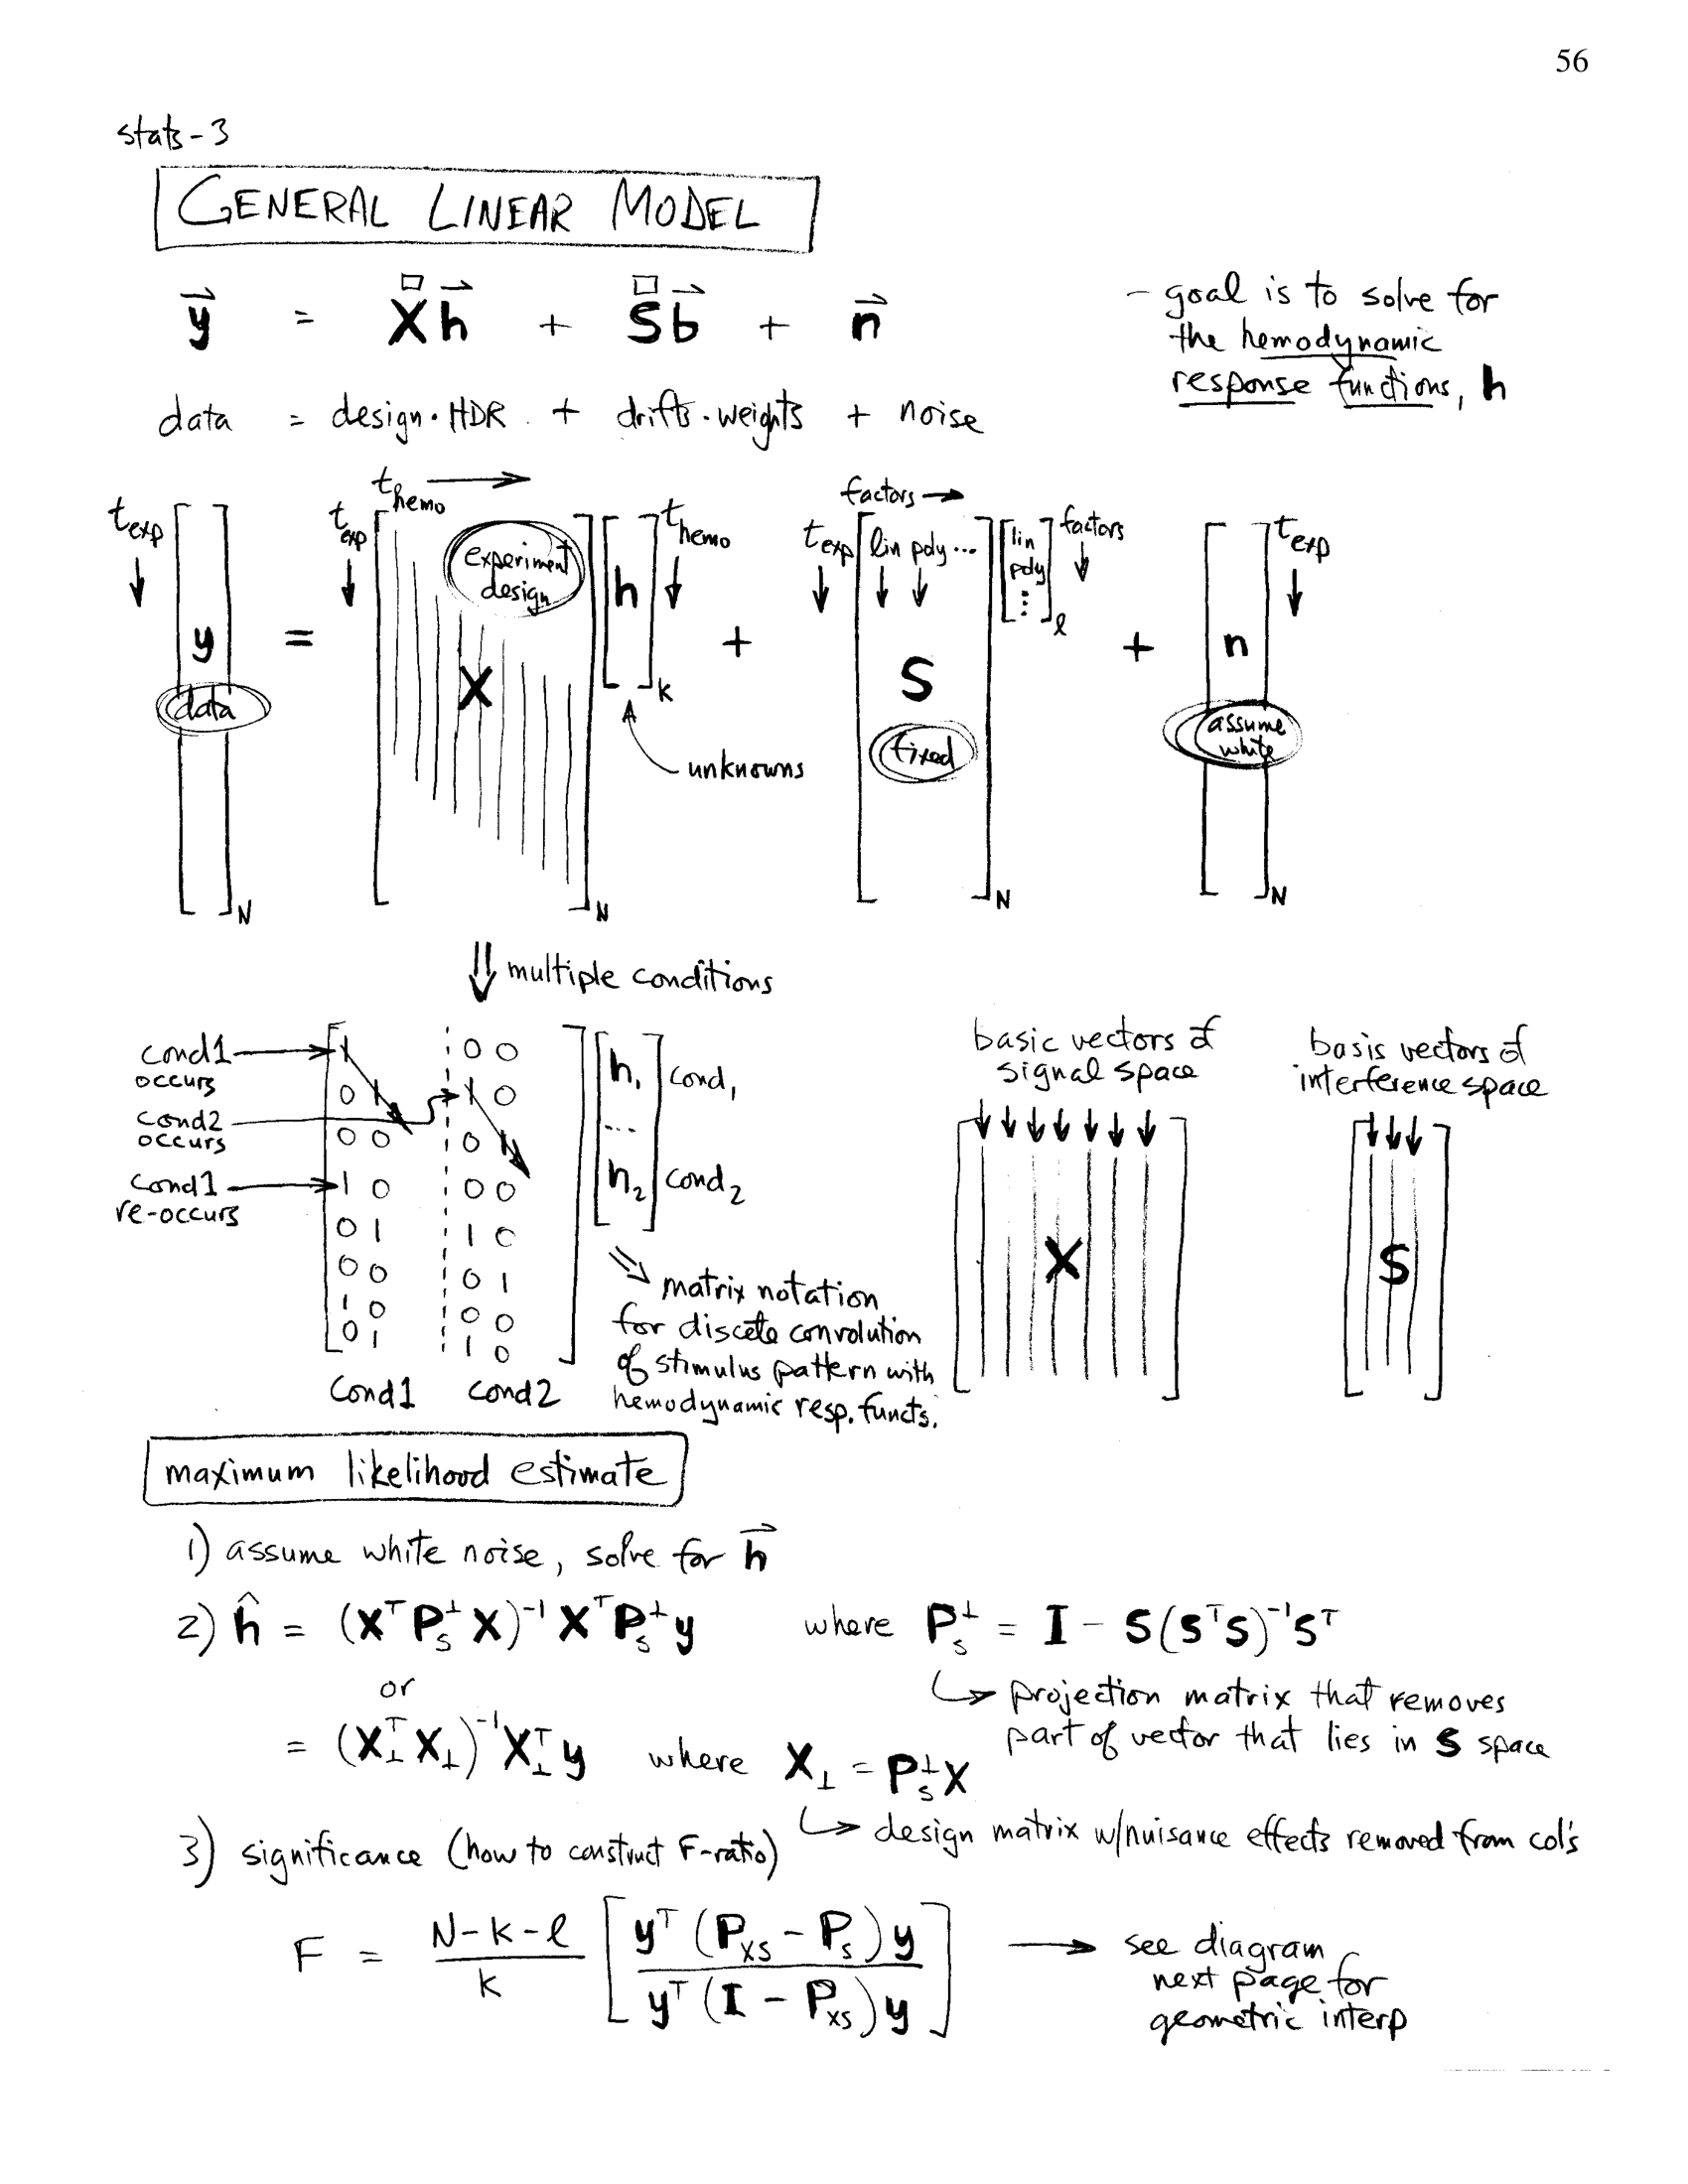 56
stats-3
GENERAL LINEAR MODEL
y = Xh + Sb + n
data = design · HDR + drifts · weights + noise
- goal is to solve for
the hemodynamic
response functions, h
t_hemo →
t_exp ↓ [ y data ]_N = t_exp ↓ [ experiment design X ]_N [ h ]_k t_hemo ↓ + t_exp ↓ factors → [ lin poly ... S fixed ]_N [ lin poly ... ]_l factors ↓ + [ n assume white ]_N t_exp ↓
unknowns
⇓ multiple conditions
cond1
occurs
cond2
occurs
cond1
re-occurs
1 0 0
0 1 1 0
0 0 0 1
1 0 0 0
0 1 1 0
0 0 0 1
1 0 0 0
0 1 1 0
cond1 cond2
h₁ cond₁
...
h₂ cond₂
⇒ matrix notation
for discete convolution
of stimulus pattern with
hemodynamic resp. functs.
basic vectors of
signal space
X
basis vectors of
interference space
S
maximum likelihood estimate
1) assume white noise, solve for h
2) ĥ = (XᵀP_s^⊥X)⁻¹XᵀP_s^⊥y where P_s^⊥ = I - S(SᵀS)⁻¹Sᵀ
↳ projection matrix that removes
part of vector that lies in S space
or
= (X_⊥ᵀX_⊥)⁻¹X_⊥ᵀy where X_⊥ = P_s^⊥X
↳ design matrix w/nuisance effects removed from col's
3) significance (how to construct F-ratio)
F = (N-k-l)/k [ yᵀ(P_xs - P_s)y / yᵀ(I - P_xs)y ] → see diagram
next page for
geometric interp